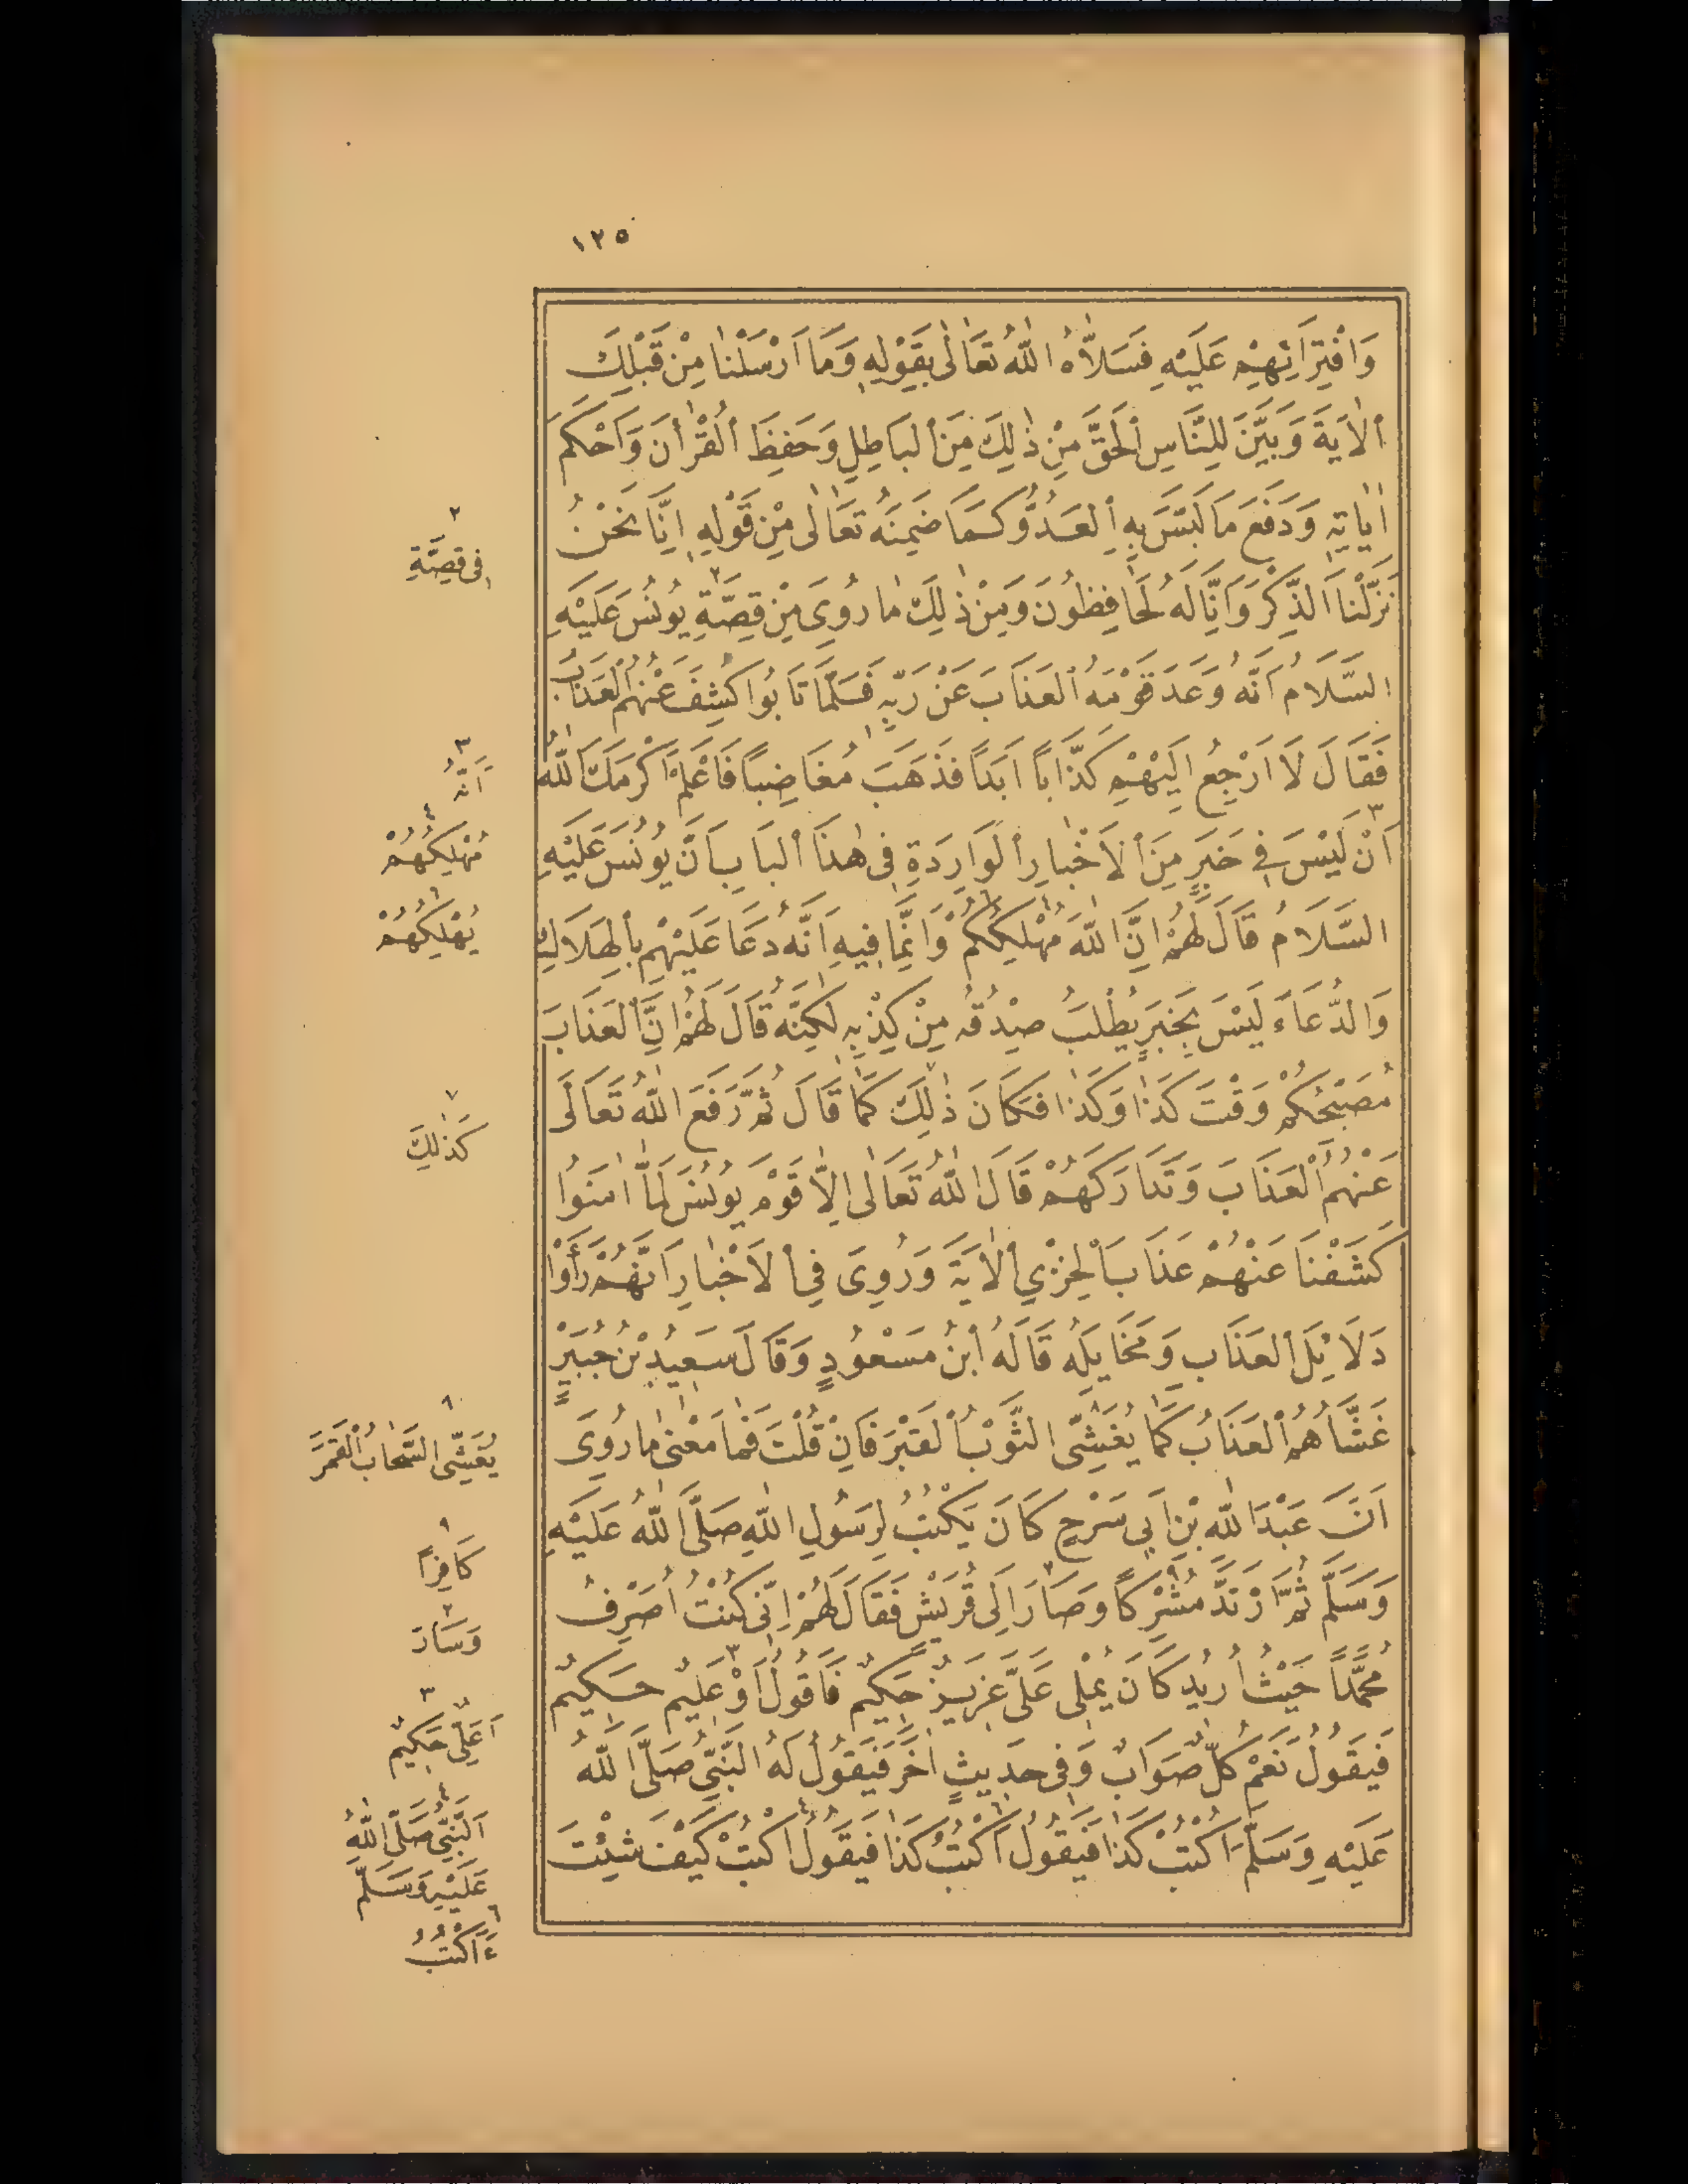 ١٢٥
وَافْتِرَائِهِمْ عَلَيْهِ فَسَلَّاهُ اللّٰهُ تَعَالٰى بِقَوْلِهِ وَمَا اَرْسَلْنَا مِنْ قَبْلِكَ
اَلْاٰيَةَ وَبَيَّنَ لِلنَّاسِ الْحَقَّ مِنْ ذٰلِكَ مِنَ الْبَاطِلِ وَحَفِظَ الْقُرْاٰنَ وَاَحْكَمَ
اٰيَاتِهِ وَدَفَعَ مَا لَبَّسَ بِهِ الْعَدُوُّ كَمَا ضَمِنَهُ تَعَالٰى مِنْ قَوْلِهِ اِنَّا نَحْنُ
نَزَّلْنَا الذِّكْرَ وَاِنَّا لَهُ لَحَافِظُونَ وَمِنْ ذٰلِكَ مَا رُوِىَ مِنْ قِصَّةِ يُونُسَ عَلَيْهِ
السَّلَامُ اَنَّهُ وَعَدَ قَوْمَهُ الْعَذَابَ عَنْ رَبِّهِ فَلَمَّا تَابُوا كُشِفَ عَنْهُمُ الْعَذَابُ
فَقَالَ لَا اَرْجِعُ اِلَيْهِمْ كَذَّابًا اَبَدًا فَذَهَبَ مُغَاضِبًا فَاعْلَمْ اَكْرَمَكَ اللّٰهُ
اَنْ لَيْسَ فِى خَبَرٍ مِنَ الْاَخْبَارِ الْوَارِدَةِ فِى هٰذَا الْبَابِ اَنَّ يُونُسَ عَلَيْهِ
السَّلَامُ قَالَ لَهُمْ اِنَّ اللّٰهَ مُهْلِكُكُمْ وَاِنَّمَا فِيهِ اَنَّهُ دَعَا عَلَيْهِمْ بِالْهَلَاكِ
وَالدُّعَاءُ لَيْسَ بِخَبَرٍ يُطْلَبُ صِدْقُهُ مِنْ كِذْبِهِ لٰكِنَّهُ قَالَ لَهُمْ اِنَّ الْعَذَابَ
مُصَبِّحُكُمْ وَقْتَ كَذَا وَكَذَا فَكَانَ ذٰلِكَ كَمَا قَالَ ثُمَّ رَفَعَ اللّٰهُ تَعَالٰى
عَنْهُمُ الْعَذَابَ وَتَدَارَكَهُمْ قَالَ اللّٰهُ تَعَالٰى اِلَّا قَوْمَ يُونُسَ لَمَّا اٰمَنُوا
كَشَفْنَا عَنْهُمْ عَذَابَ الْخِزْيِ الْاٰيَةَ وَرُوِىَ فِي الْاَخْبَارِ اَنَّهُمْ رَأَوْا
دَلَائِلَ الْعَذَابِ وَمَخَايِلَهُ قَالَهُ ابْنُ مَسْعُودٍ وَقَالَ سَعِيدُ بْنُ جُبَيْرٍ
غَشَّاهُمُ الْعَذَابُ كَمَا يُغَشِّى الثَّوْبُ الْقَبْرَ فَاِنْ قُلْتَ فَمَا مَعْنٰى مَا رُوِىَ
اَنَّ عَبْدَ اللّٰهِ بْنَ اَبِى سَرْحٍ كَانَ يَكْتُبُ لِرَسُولِ اللّٰهِ صَلَّى اللّٰهُ عَلَيْهِ
وَسَلَّمَ ثُمَّ ارْتَدَّ مُشْرِكًا وَصَارَ اِلَى قُرَيْشٍ فَقَالَ لَهُمْ اِنِّى كُنْتُ اُصَرِّفُ
مُحَمَّدًا حَيْثُ اُرِيدُ كَانَ يُمْلِى عَلَىَّ عَزِيزٌ حَكِيمٌ فَاَقُولُ اَوْ عَلِيمٌ حَكِيمٌ
فَيَقُولُ نَعَمْ كُلٌّ صَوَابٌ وَفِى حَدِيثٍ اٰخَرَ فَيَقُولُ لَهُ النَّبِىُّ صَلَّى اللّٰهُ
عَلَيْهِ وَسَلَّمَ اكْتُبْ كَذَا فَيَقُولُ اَكْتُبُ كَذَا فَيَقُولُ اكْتُبْ كَيْفَ شِئْتَ
٢
فِى قِصَّةِ
٣
اَنَّهُ
٤
مُهْلِكُهُمْ
٦
يُهْلِكُهُمْ
٧
كَذٰلِكَ
٨
يُغَشِّى السَّحَابُ الْقَمَرَ
٩
كَافِرًا
٢
وَسَارَ
٣
اَعَلِىٌّ حَكِيمٌ
٤
اَلنَّبِىُّ صَلَّى اللّٰهُ
عَلَيْهِ وَسَلَّمَ
٦
ءَاَكْتُبُ